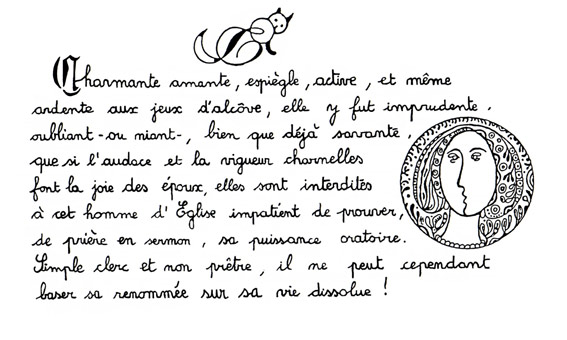 Charmante amante, espiègle, active, et même
ardente aux jeux d'alcôve, elle y fut imprudente,
oubliant -ou niant-, bien que déjà savante,
que si l'audace et la vigueur charnelles
font la joie des époux, elles sont interdites
à cet homme d'Eglise impatient de prouver,
de prière en sermon, sa puissance oratoire.
Simple clerc et non prêtre, il ne peut cependant
baser sa renommée sur sa vie dissolue !